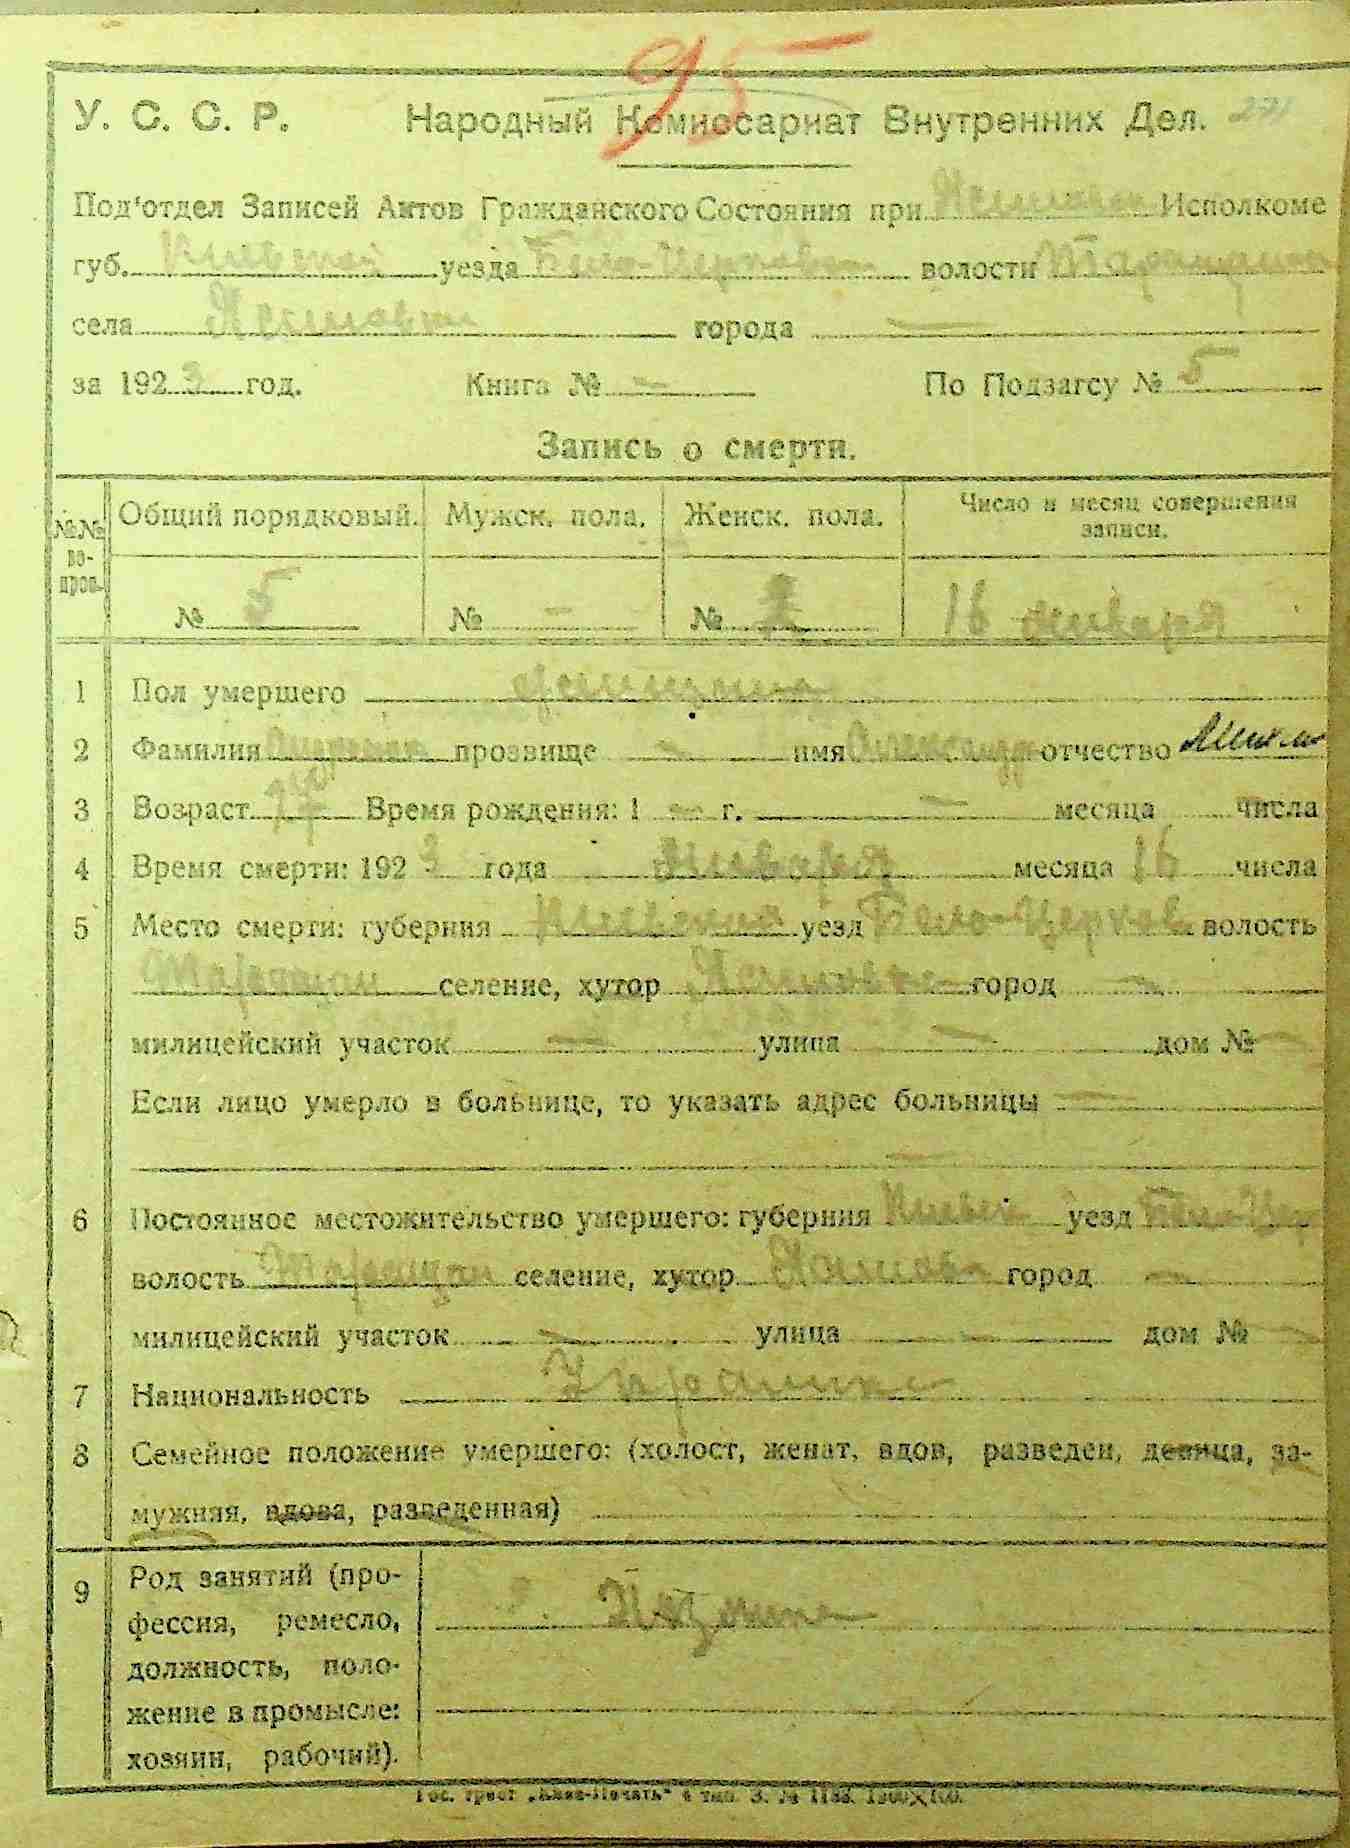 95
У. С. С. Р. Народный Комиссариат Внутренних Дел. 271
Под'отдел Записей Актов Гражданского Состояния при Исполкоме
губ. Киевской уезда Бело-Церковск волости
села города —
за 1923 год. Книга № — По Подзагсу № 5
Запись о смерти.
№№ во- пров. Общий порядковый. Мужск. пола. Женск. пола. Число и месяц совершения записи.
№ 5 № — № 2 16 января
1 Пол умершего женщина
2 Фамилия прозвище — имя Александр отчество
3 Возраст Время рождения: 1 — г. — месяца числа
4 Время смерти: 1923 года января месяца 16 числа
5 Место смерти: губерния Киевская уезд Бело-Церков волость
Таращан селение, хутор город —
милицейский участок — улица — дом № —
Если лицо умерло в больнице, то указать адрес больницы —
—
6 Постоянное местожительство умершего: губерния Киевск уезд Бело-Цер
волость Таращан селение, хутор город —
милицейский участок — улица — дом № —
7 Национальность Украинка
8 Семейное положение умершего: (холост, женат, вдов, разведен, девица, за-
мужняя, вдова, разведенная)
9 Род занятий (про-
фессия, ремесло,
должность, поло-
жение в промысле:
хозяин, рабочий).
Гос. трест „Киев-Печать“ 4 тип. З. №